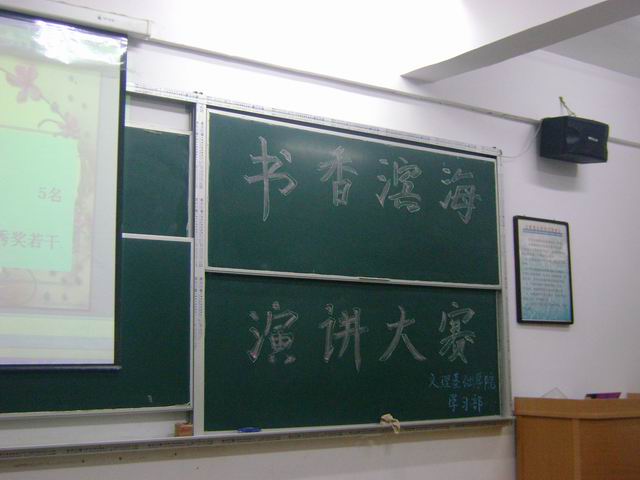 5名
秀奖若干
书香滨海
演讲大赛
文理基础学院
学习部